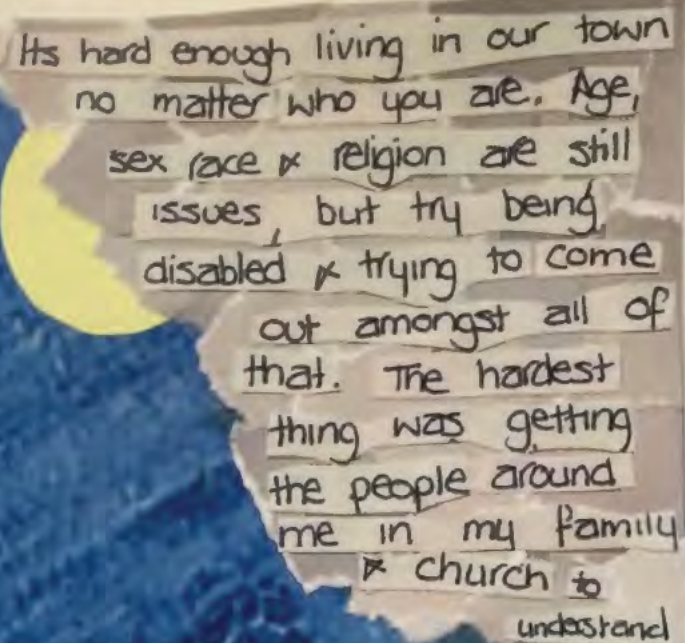 Its hard enough living in our town
no matter who you are. Age,
sex race & religion are still
issues, but try being
disabled & trying to come
out amongst all of
that. The hardest
thing was getting
the people around
me in my family
& church to
understand